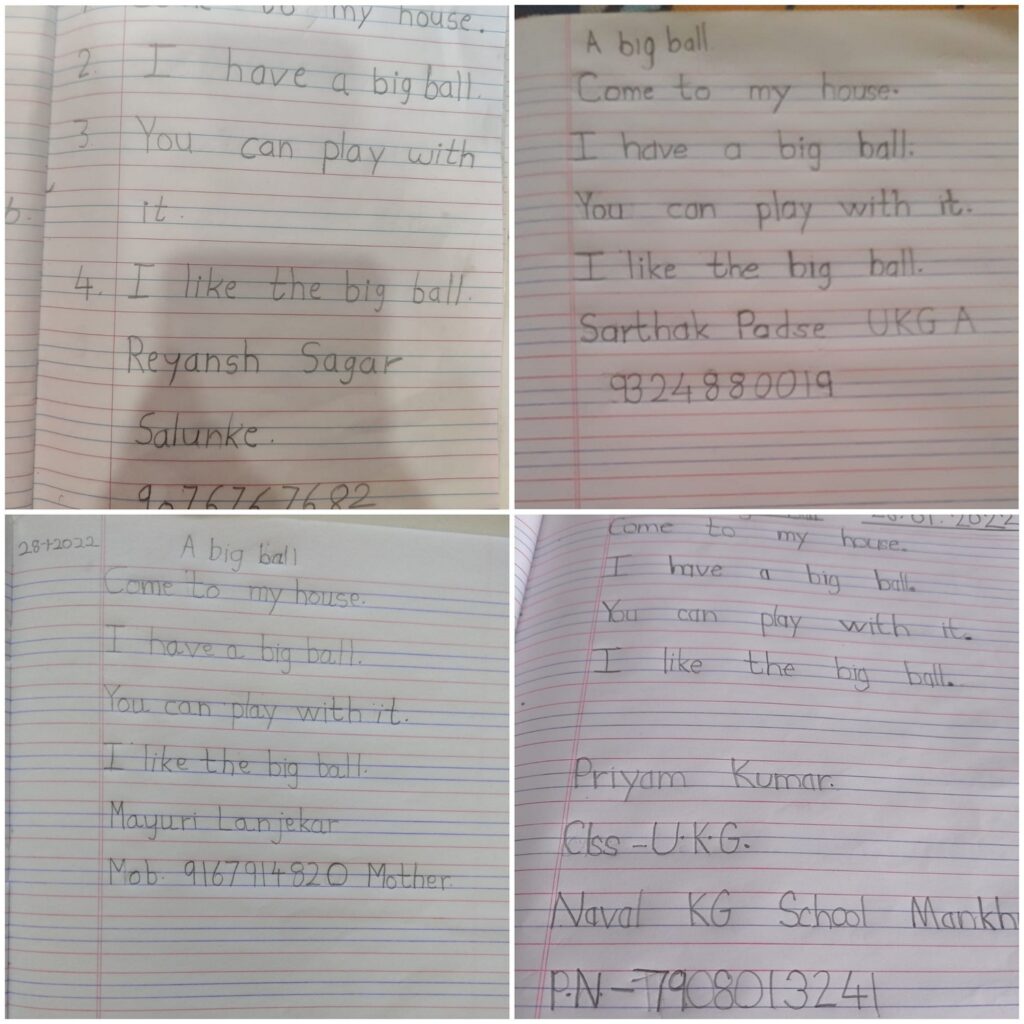 Come to my house.
2. I have a big ball.
3. You can play with
it.
4. I like the big ball.
Reyansh Sagar
Salunke.
9076767682
A big ball
Come to my house.
I have a big ball.
You can play with it.
I like the big ball.
Sarthak Padse UKG A
9324880019
A big ball
Come to my house.
I have a big ball.
You can play with it.
I like the big ball.
Mayuri Lanjekar
Mob. 9167914820 Mother
Come to my house.
I have a big ball.
You can play with it.
I like the big ball.
Priyam Kumar.
Clss - U.K.G.
Naval KG School Mankh
P.N - 7908013241